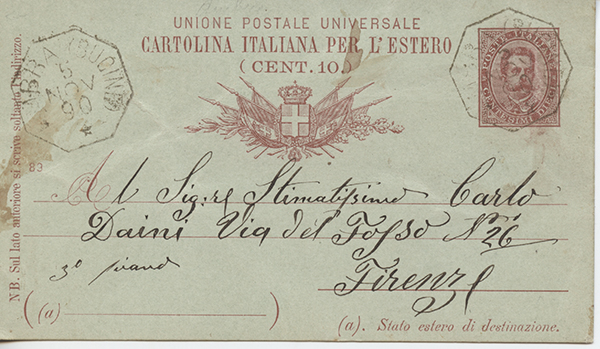 UNIONE POSTALE UNIVERSALE
CARTOLINA ITALIANA PER L'ESTERO
(CENT. 10.)
POSTE ITALIANE
CENTESIMI DIECI
NB. Sul lato anteriore si scrive soltanto l'indirizzo.
89
Al Sig:re Stimatissimo Carlo
Daini Via del Fosso N° 26
3°
Firenze
(a)
(a). Stato estero di destinazione.